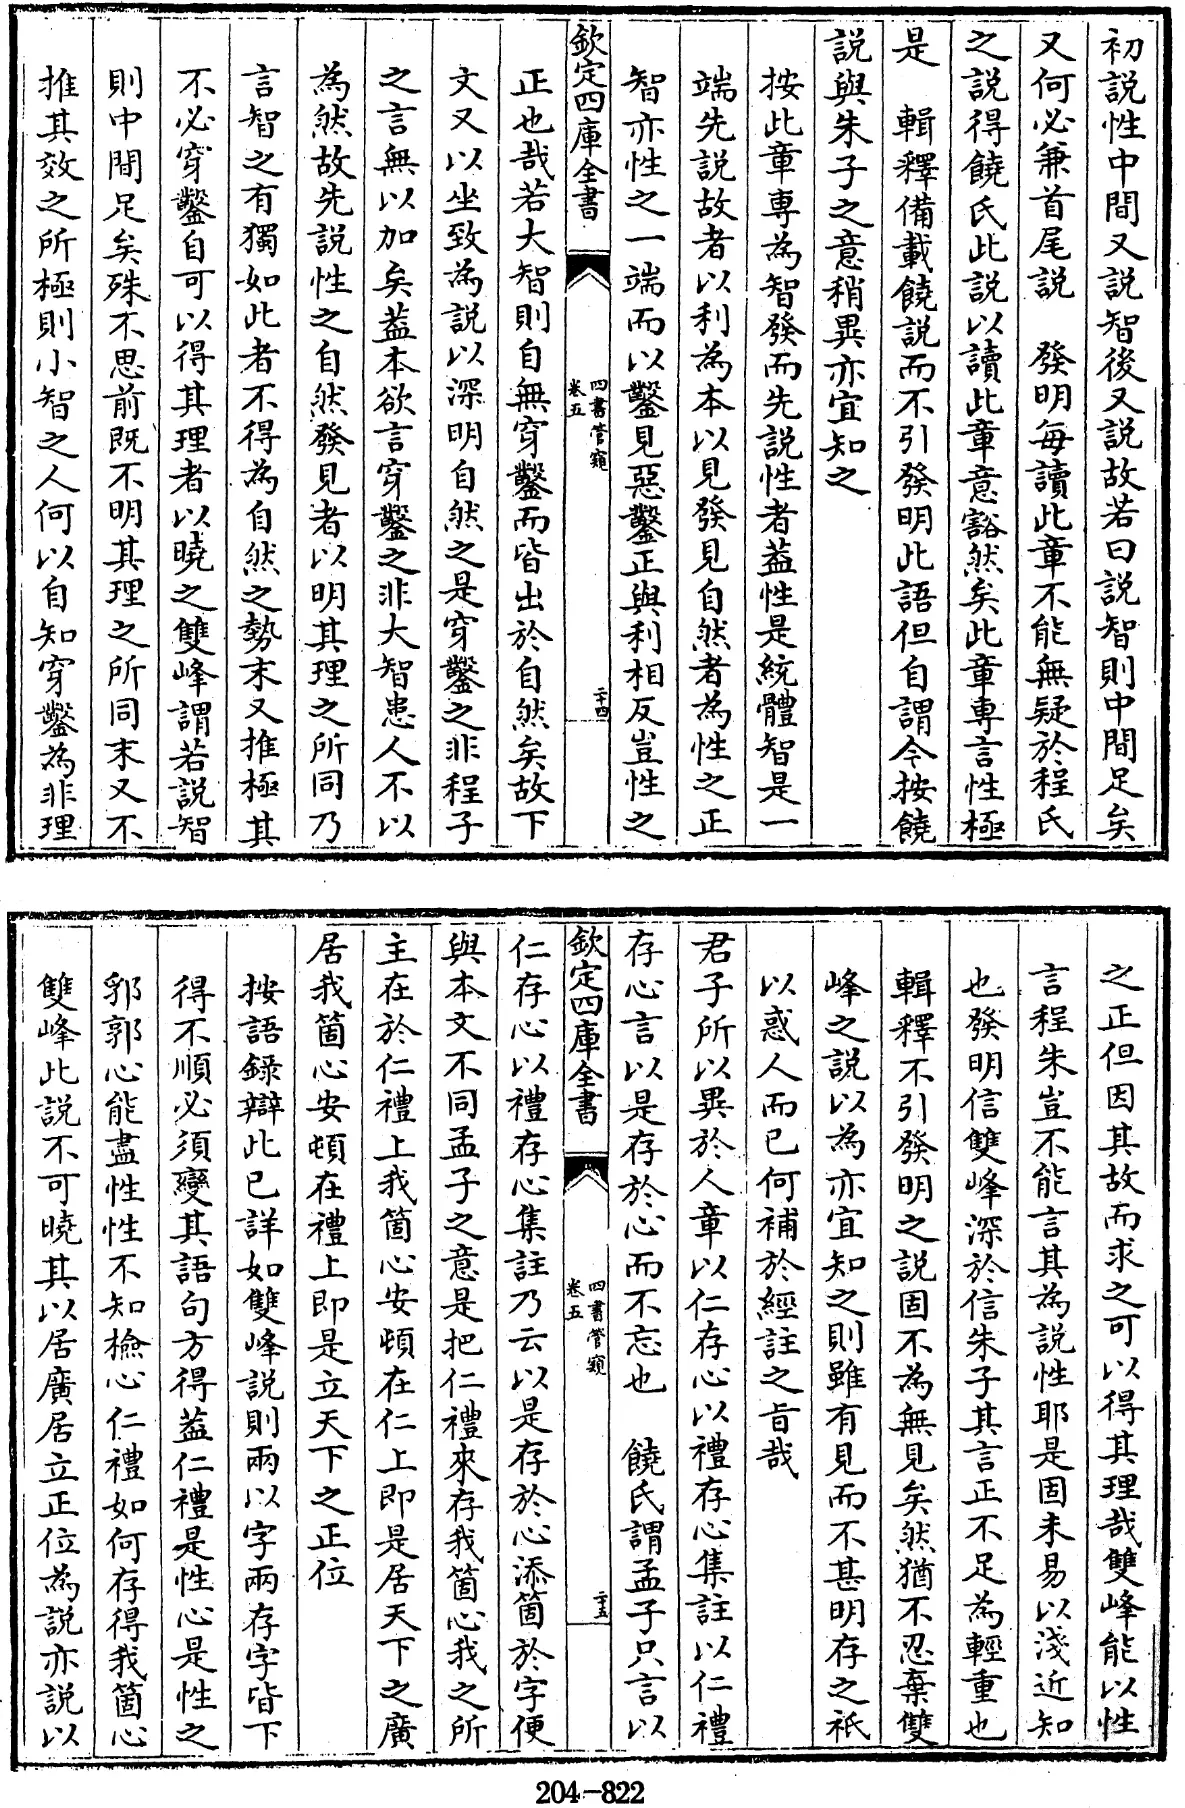 初説性中間又説智後又説故若曰説智則中間足矣
又何必兼首尾説　發明每讀此章不能無疑於程氏
之説得饒氏此説以讀此章意豁然矣此章專言性極
是　輯釋備載饒説而不引發明此語但自謂今按饒
説與朱子之意稍異亦宜知之
按此章專為智發而先説性者葢性是統體智是一
端先説故者以利為本以見發見自然者為性之正
智亦性之一端而以鑿見惡鑿正與利相反豈性之
欽定四庫全書
四書管窺
卷五
二十四
正也哉若大智則自無穿鑿而皆出於自然矣故下
文又以坐致為説以深明自然之是穿鑿之非程子
之言無以加矣葢本欲言穿鑿之非大智患人不以
為然故先説性之自然發見者以明其理之所同乃
言智之有獨如此者不得為自然之勢末又推極其
不必穿鑿自可以得其理者以曉之雙峰謂若説智
則中間足矣殊不思前既不明其理之所同末又不
推其效之所極則小智之人何以自知穿鑿為非理
之正但因其故而求之可以得其理哉雙峰能以性
言程朱豈不能言其為説性耶是固未易以淺近知
也發明信雙峰深於信朱子其言正不足為輕重也
輯釋不引發明之説固不為無見矣然猶不忍棄雙
峰之説以為亦宜知之則雖有見而不甚明存之秖
以惑人而已何補於經註之旨哉
君子所以異於人章以仁存心以禮存心集註以仁禮
存心言以是存於心而不忘也　饒氏謂孟子只言以
欽定四庫全書
四書管窺
卷五
二十五
仁存心以禮存心集註乃云以是存於心添箇於字便
與本文不同孟子之意是把仁禮來存我箇心我之所
主在於仁禮上我箇心安頓在仁上即是居天下之廣
居我箇心安頓在禮上即是立天下之正位
按語錄辯此已詳如雙峰説則兩以字兩存字皆下
得不順必須變其語句方得葢仁禮是性心是性之
郛郭心能盡性性不知檢心仁禮如何存得我箇心
雙峰此説不可曉其以居廣居立正位為説亦説以
204-822